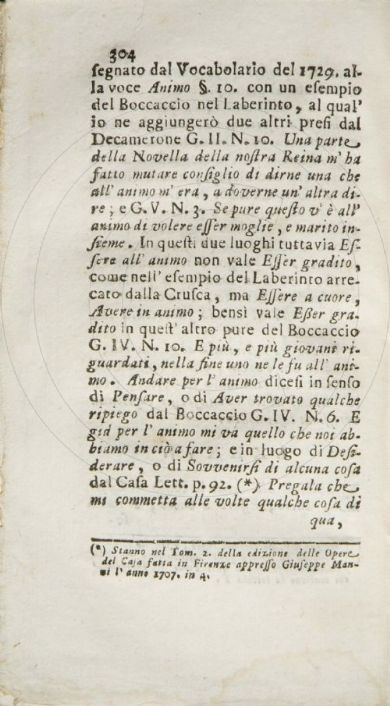 304
segnato dal Vocabolario del 1729. al-
la voce Animo §. 10. con un esempio
del Boccaccio nel Laberinto, al qual'
io ne aggiungerò due altri presi dal
Decamerone G. II. N. 10. Una parte
della Novella della nostra Reina m' ha
fatto mutare consiglio di dirne una che
all' animo m' era, a doverne un' altra di-
re; e G. V. N. 3. Se pure questo v' è all'
animo di volere esser moglie, e marito in-
sieme. In questi due luoghi tuttavia Es-
sere all' animo non vale Esser gradito,
come nell' esempio del Laberinto arre-
cato dalla Crusca, ma Essere a cuore,
Avere in animo; bensì vale Esser gra-
dito in quest' altro pure del Boccaccio
G. IV. N. 10. E più, e più giovani ri-
guardati, nella fine uno ne le fu all' ani-
mo. Andare per l' animo dicesi in senso
di Pensare, o di Aver trovato qualche
ripiego dal Boccaccio G. IV. N. 6. E
già per l' animo mi va quello che noi ab-
biamo in ciò a fare; e in luogo di Desi-
derare, o di Sovvenirsi di alcuna cosa
dal Casa Lett. p. 92. (*) Pregala che
mi commetta alle volte qualche cosa di
qua,
(*) Stanno nel Tom. 2. della edizione delle Opere
del Casa fatta in Firenze appresso Giuseppe Man-
ni l' anno 1707. in 4.